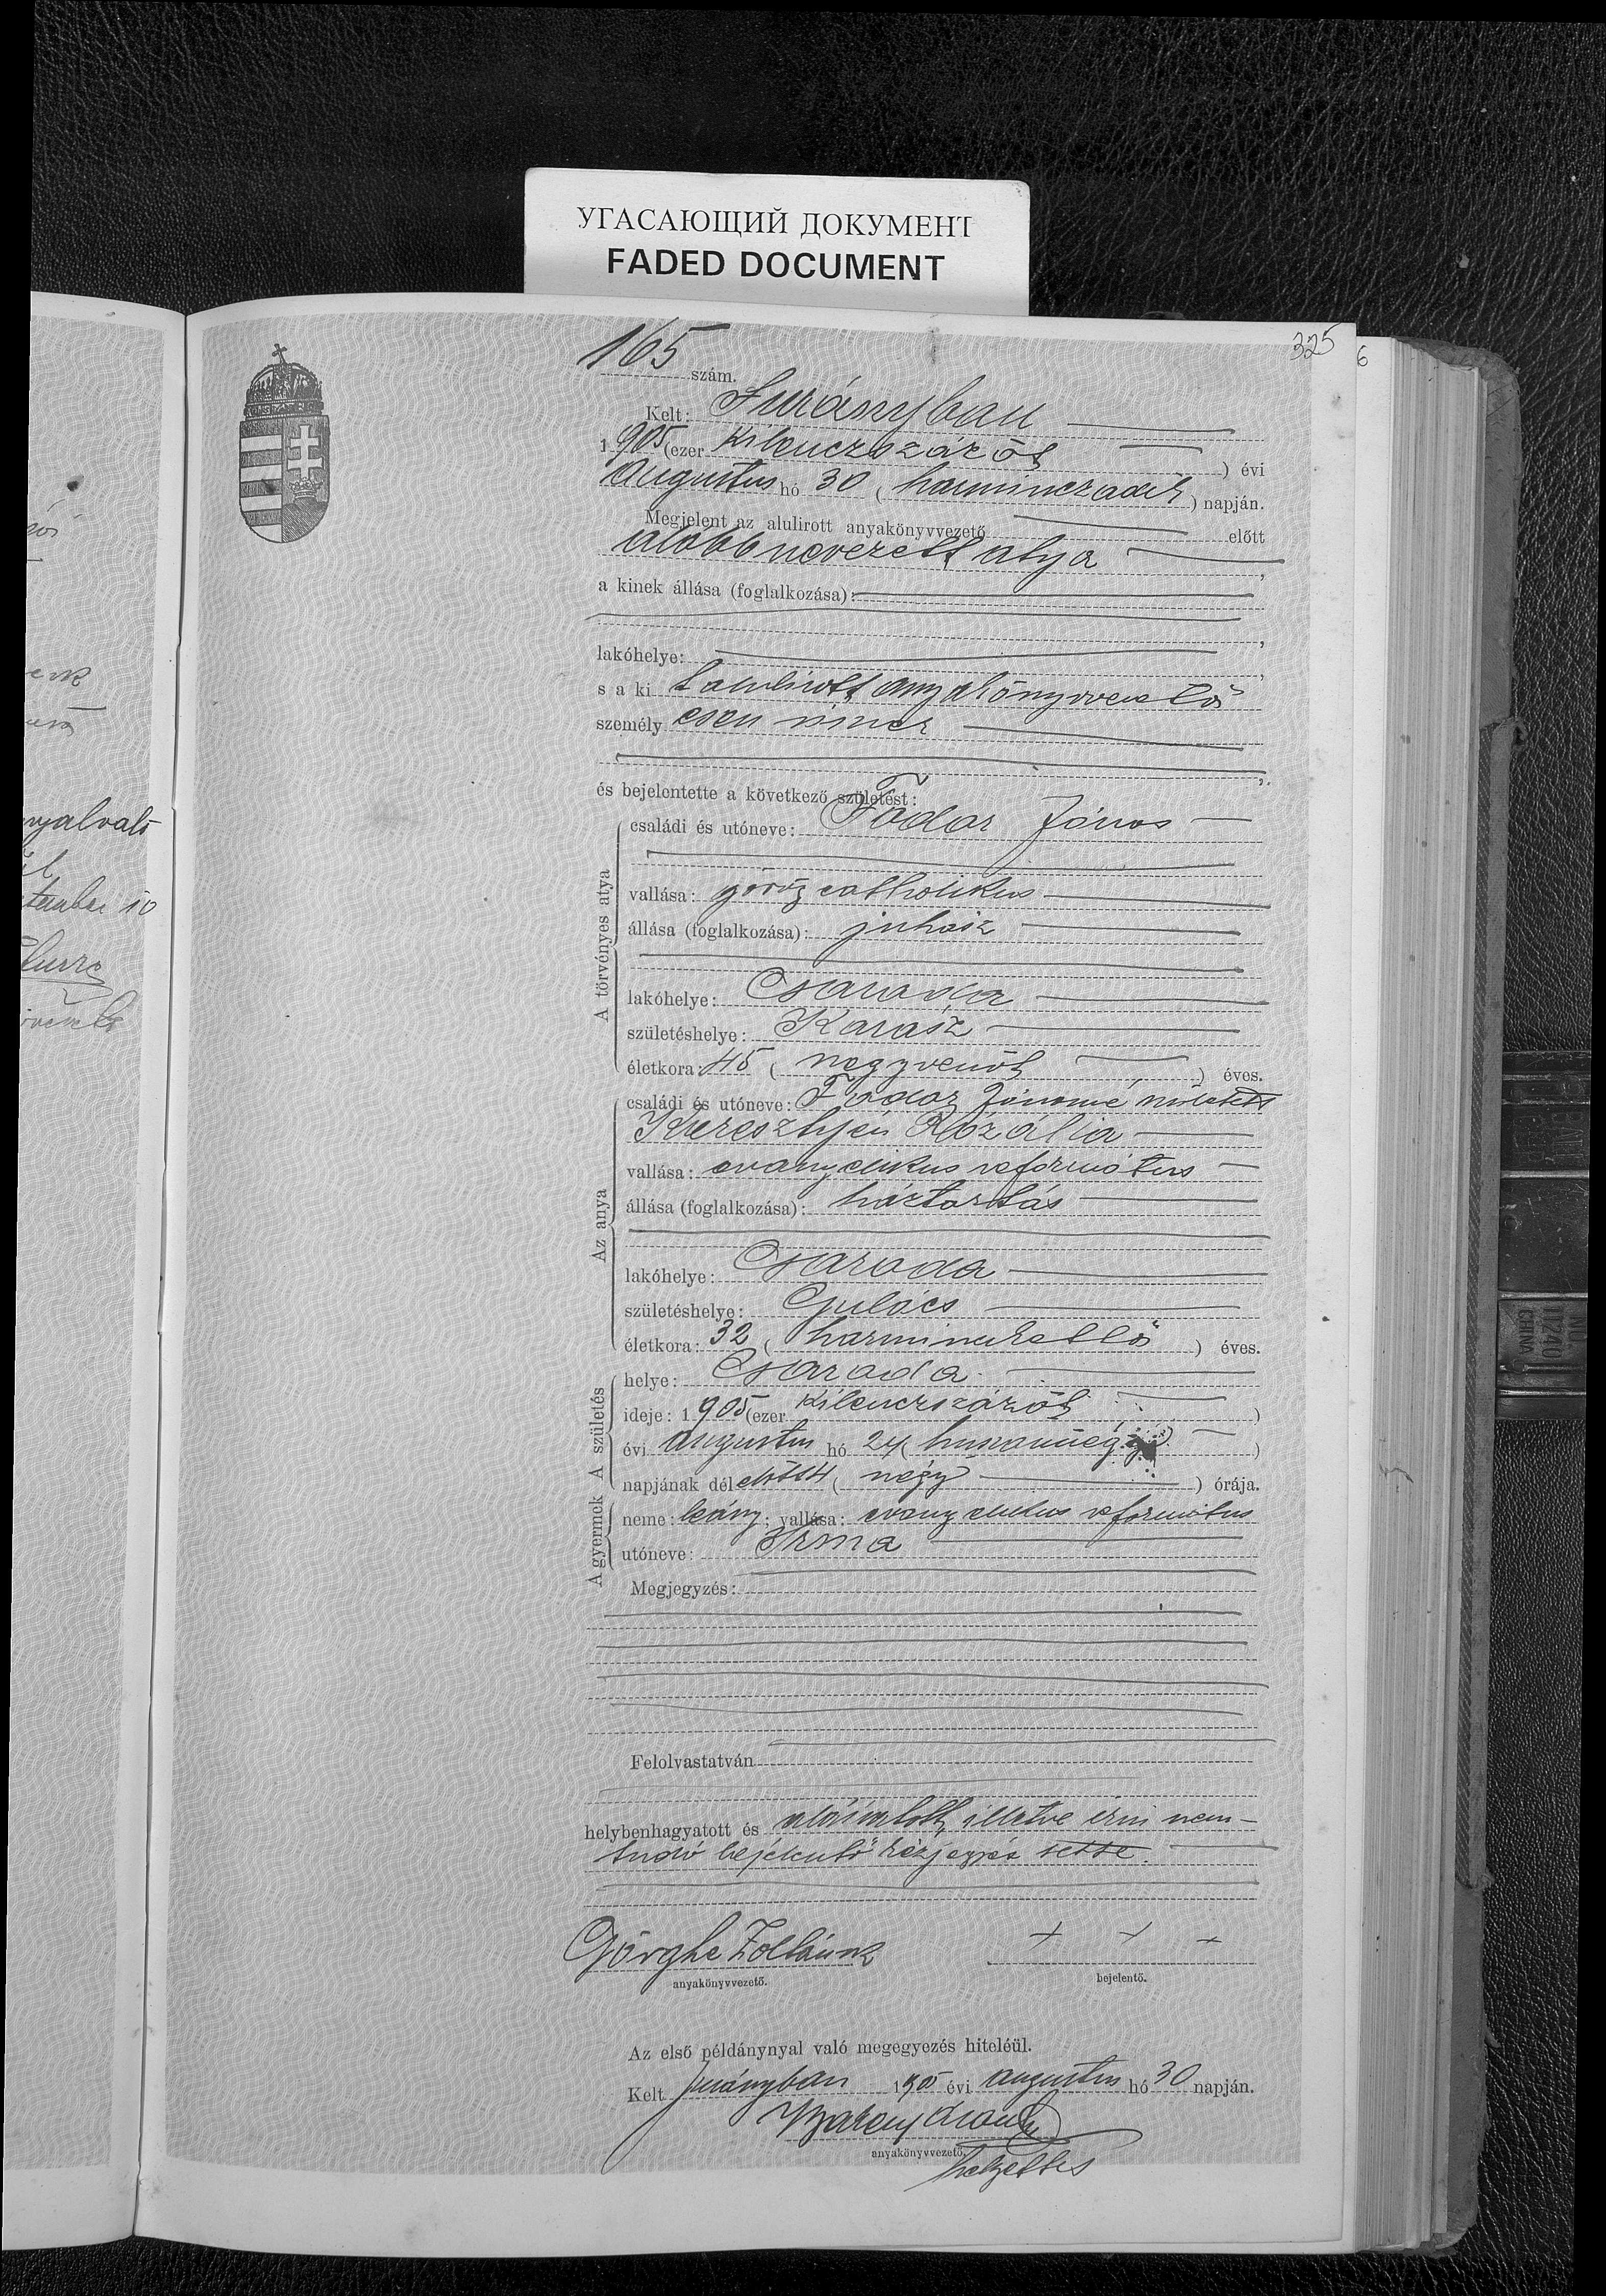 УГАСАЮЩИЙ ДОКУМЕНТ
FADED DOCUMENT
325
6
165 szám.
Kelt: Surányban
1905 (ezer kilenczszázöt) évi
Augustus hó 30 (harminczadik) napján.
Megjelent az alulirott anyakönyvvezető előtt
alább nevezett atya,
a kinek állása (foglalkozása):
lakóhelye:
s a ki alulirott anyakönyvvezető
személy esen nincs
és bejelentette a következő születést:
A törvényes atya
családi és utóneve: Fodor János
vallása: görög catholikus
állása (foglalkozása): juhász
lakóhelye: Csaroda
születéshelye: Karász
életkora: 45 (negyvenöt) éves.
Az anya
családi és utóneve: Fodor Jánosné született
Keresztyén Rozália
vallása: evangelikus református
állása (foglalkozása): háztartás
lakóhelye: Csaroda
születéshelye: Gulács
életkora: 32 (harminckettő) éves.
A születés
helye: Csaroda
ideje: 1905 (ezer kilenczszázöt)
évi augustus hó 24 (huszonnégy)
napjának délelőtt 4 (négy) órája.
A gyermek
neme: leány; vallása: evangelikus református
utóneve: Irma
Megjegyzés:
Felolvastatván
helybenhagyatott és aláiratott, illetve irni nem-
tudó bejelentő kézjegyét tette.
Görghe Zoltán
anyakönyvvezető.
+ + +
bejelentő.
Az első példánynyal való megegyezés hiteléül.
Kelt Surányban 1905 évi augustus hó 30 napján.
anyakönyvvezető.
helyettes
nyalvali
tember 10